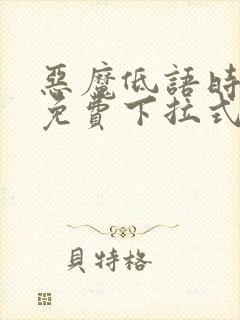 惡魔低語時
免費下拉式
貝特格